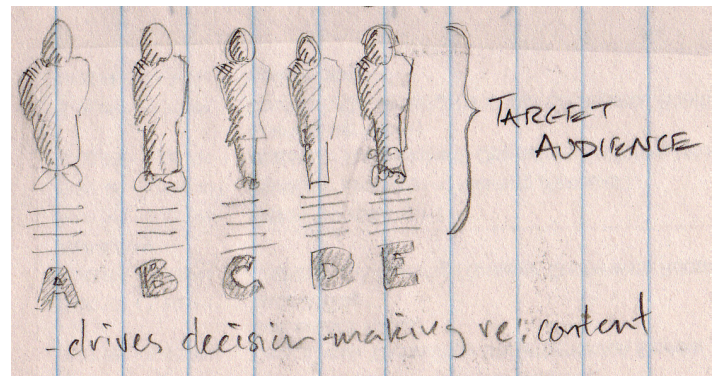 TARGET
AUDIENCE
A B C D E
-drives decision-making re: content